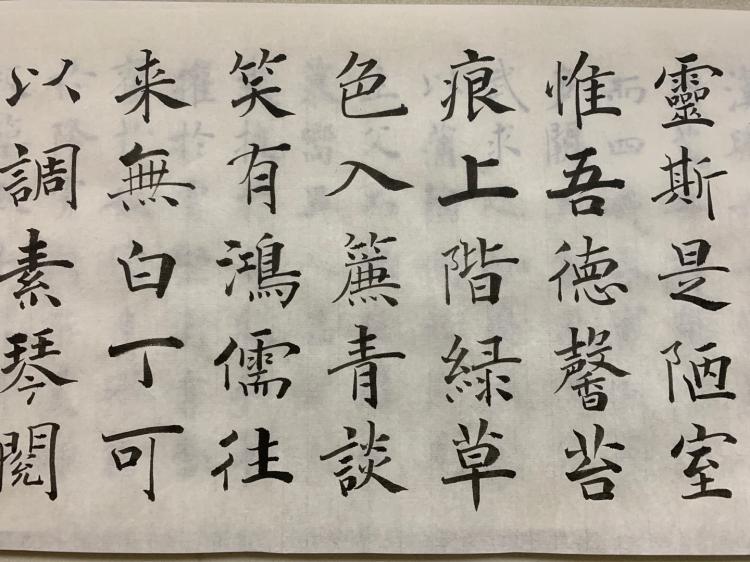 靈斯是陋室
惟吾德馨苔
痕上階緑草
色入簾青談
笑有鴻儒往
来無白丁可
以調素琴閱